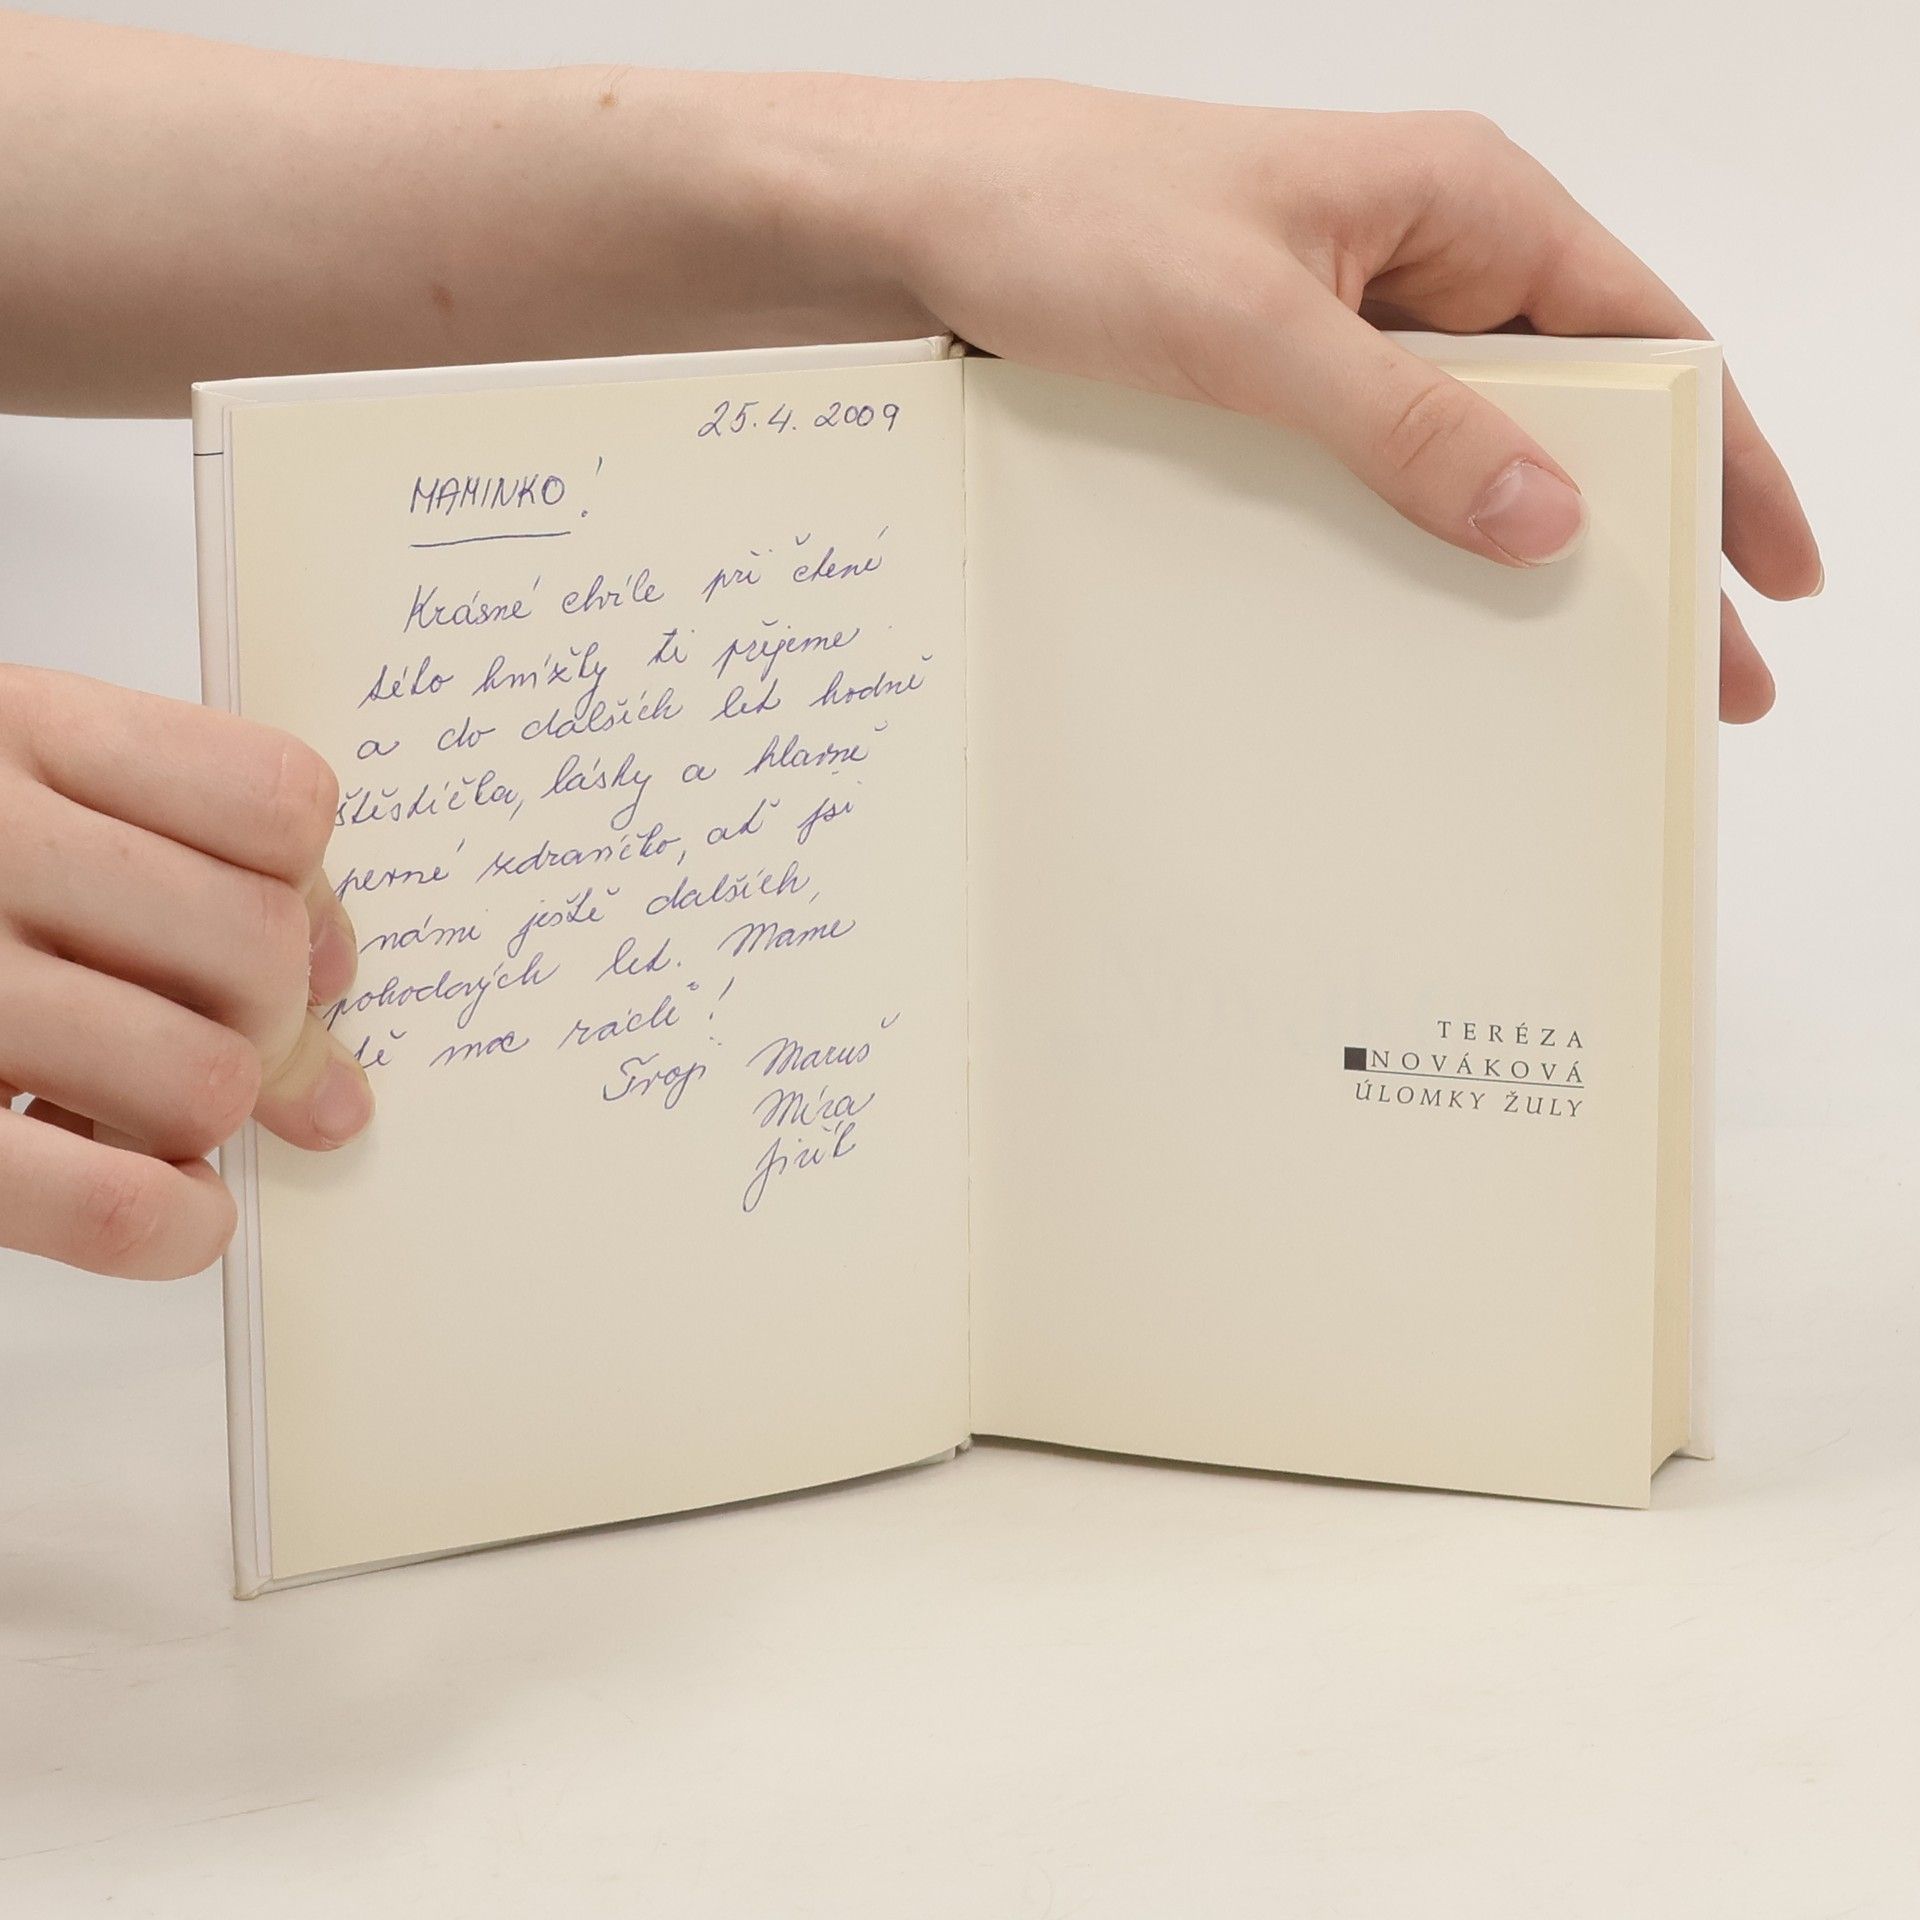 25.4.2009
MAMINKO!
Krásné chvíle při čtení
této knížky ti přejeme
a do dalších let hodně
štěstíčka, lásky a hlavně
pevné zdravíčko, ať jsi
námi ještě dalších,
pohodových let. Máme
tě moc rádi!
Tvoji Maruš
Míra
Jiřík
TERÉZA
NOVÁKOVÁ
ÚLOMKY ŽULY